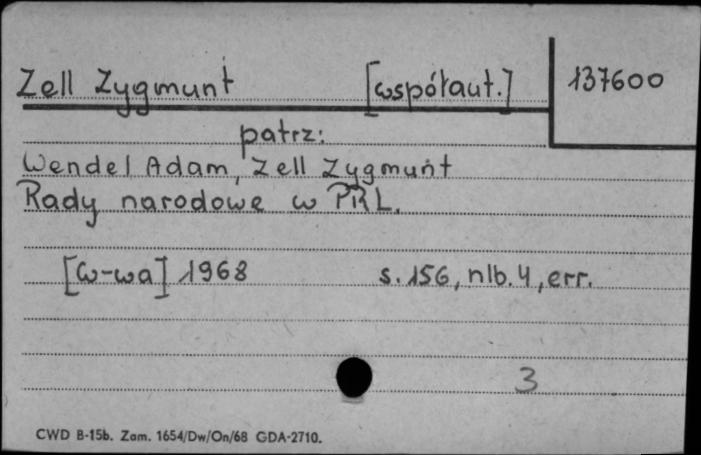 Zell Zygmunt [współaut.] 137600
patrz:
Wendel Adam, Zell Zygmunt
Rady narodowe w PRL.
[W-wa] 1968 s. 156, nlb. 4, err.
3
CWD B-15b. Zam. 1654/Dw/On/68 GDA-2710.